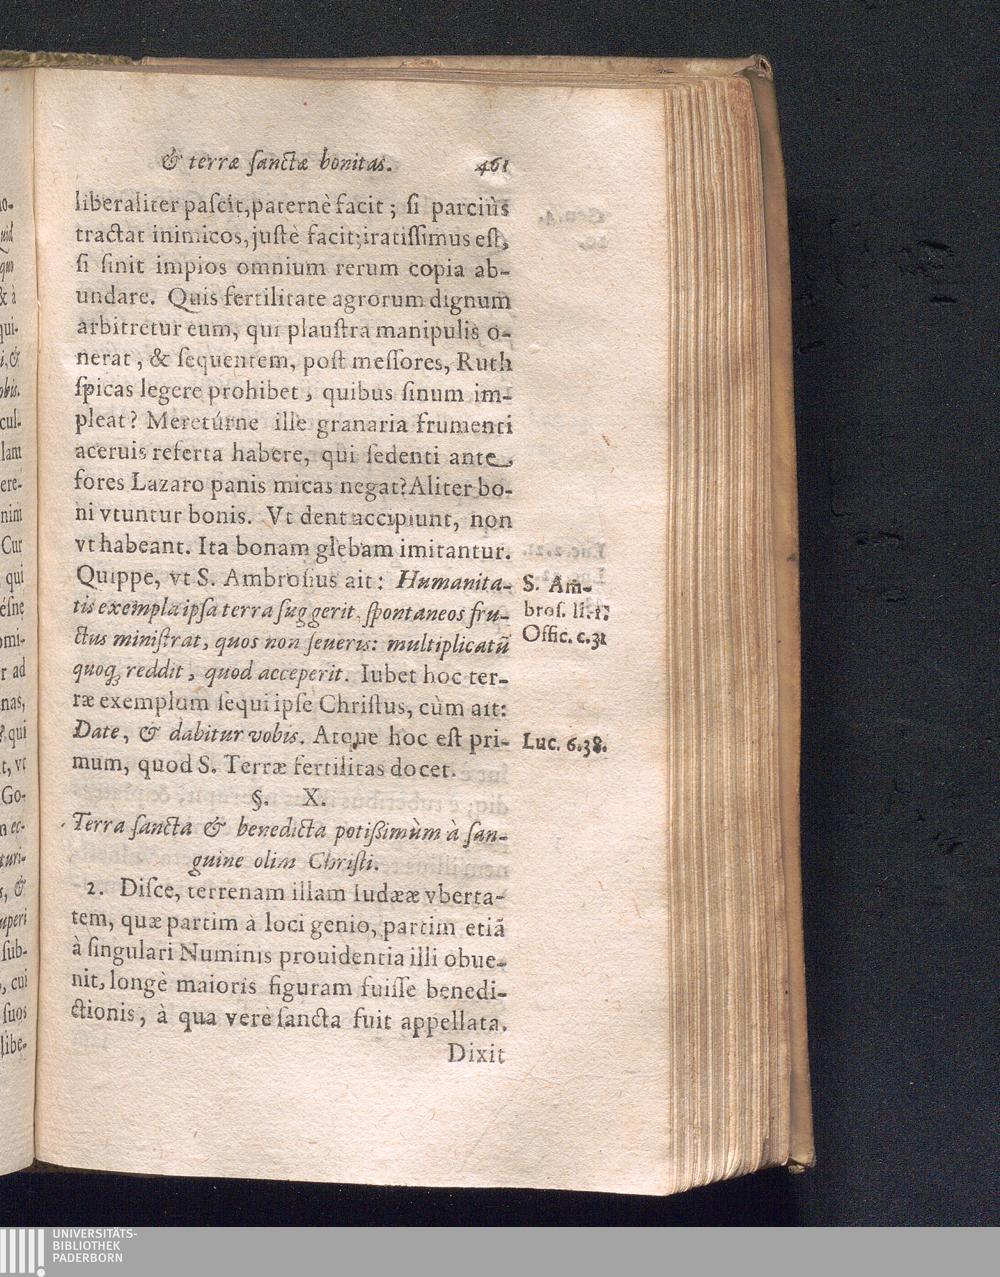 & terræ ſanctæ bonitas. 461
liberaliter paſcit, paternè facit; ſi parciùs
tractat inimicos, juſtè facit; iratiſſimus eſt,
ſi ſinit impios omnium rerum copia ab-
undare. Quis fertilitate agrorum dignum
arbitretur eum, qui plauſtra manipulis o-
nerat, & ſequentem, poſt meſſores, Ruth
ſpicas legere prohibet, quibus ſinum im-
pleat? Meretúrne ille granaria frumenti
aceruis referta habere, qui ſedenti ante
fores Lazaro panis micas negat? Aliter bo-
ni vtuntur bonis. Vt dent accipiunt, non
vt habeant. Ita bonam glebam imitantur.
Quippe, vt S. Ambroſius ait: Humanita-
tis exempla ipſa terra ſuggerit, ſpontaneos fru-
ctus miniſtrat, quos non ſeueris: multiplicatũ
quoqꝫ reddit, quod acceperit. Iubet hoc ter-
ræ exemplum ſequi ipſe Chriſtus, cùm ait:
Date, & dabitur vobis. Atque hoc eſt pri-
mum, quod S. Terræ fertilitas docet.
S. Am-
broſ. li. 1.
Offic. c. 31
Luc. 6. 38.
§. X.
Terra ſancta & benedicta potiſſimùm à ſan-
guine olim Chriſti.
2. Diſce, terrenam illam Iudææ vberta-
tem, quæ partim à loci genio, partim etiã
à ſingulari Numinis prouidentia illi obue-
nit, longè maioris figuram fuiſſe benedi-
ctionis, à qua verè ſancta fuit appellata.
Dixit
UNIVERSITÄTS-
BIBLIOTHEK
PADERBORN